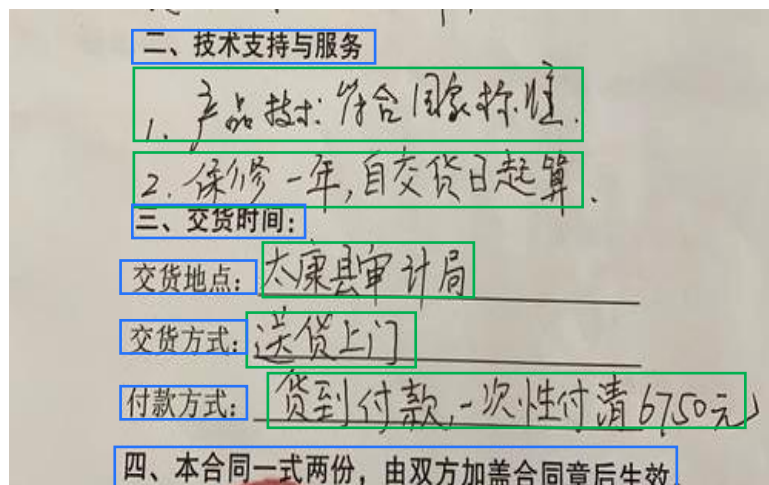 二、技术支持与服务
1. 产品技术:符合国家标准.
2. 保修一年,自交货日起算.
三、交货时间:
交货地点: 太康县审计局
交货方式: 送货上门
付款方式: 货到付款,一次性付清6750元
四、本合同一式两份,由双方加盖合同章后生效.